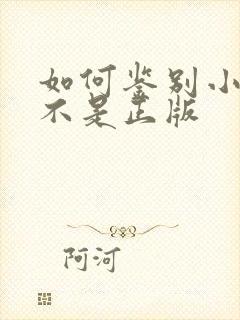 如何鉴别小
不是正版
阿河